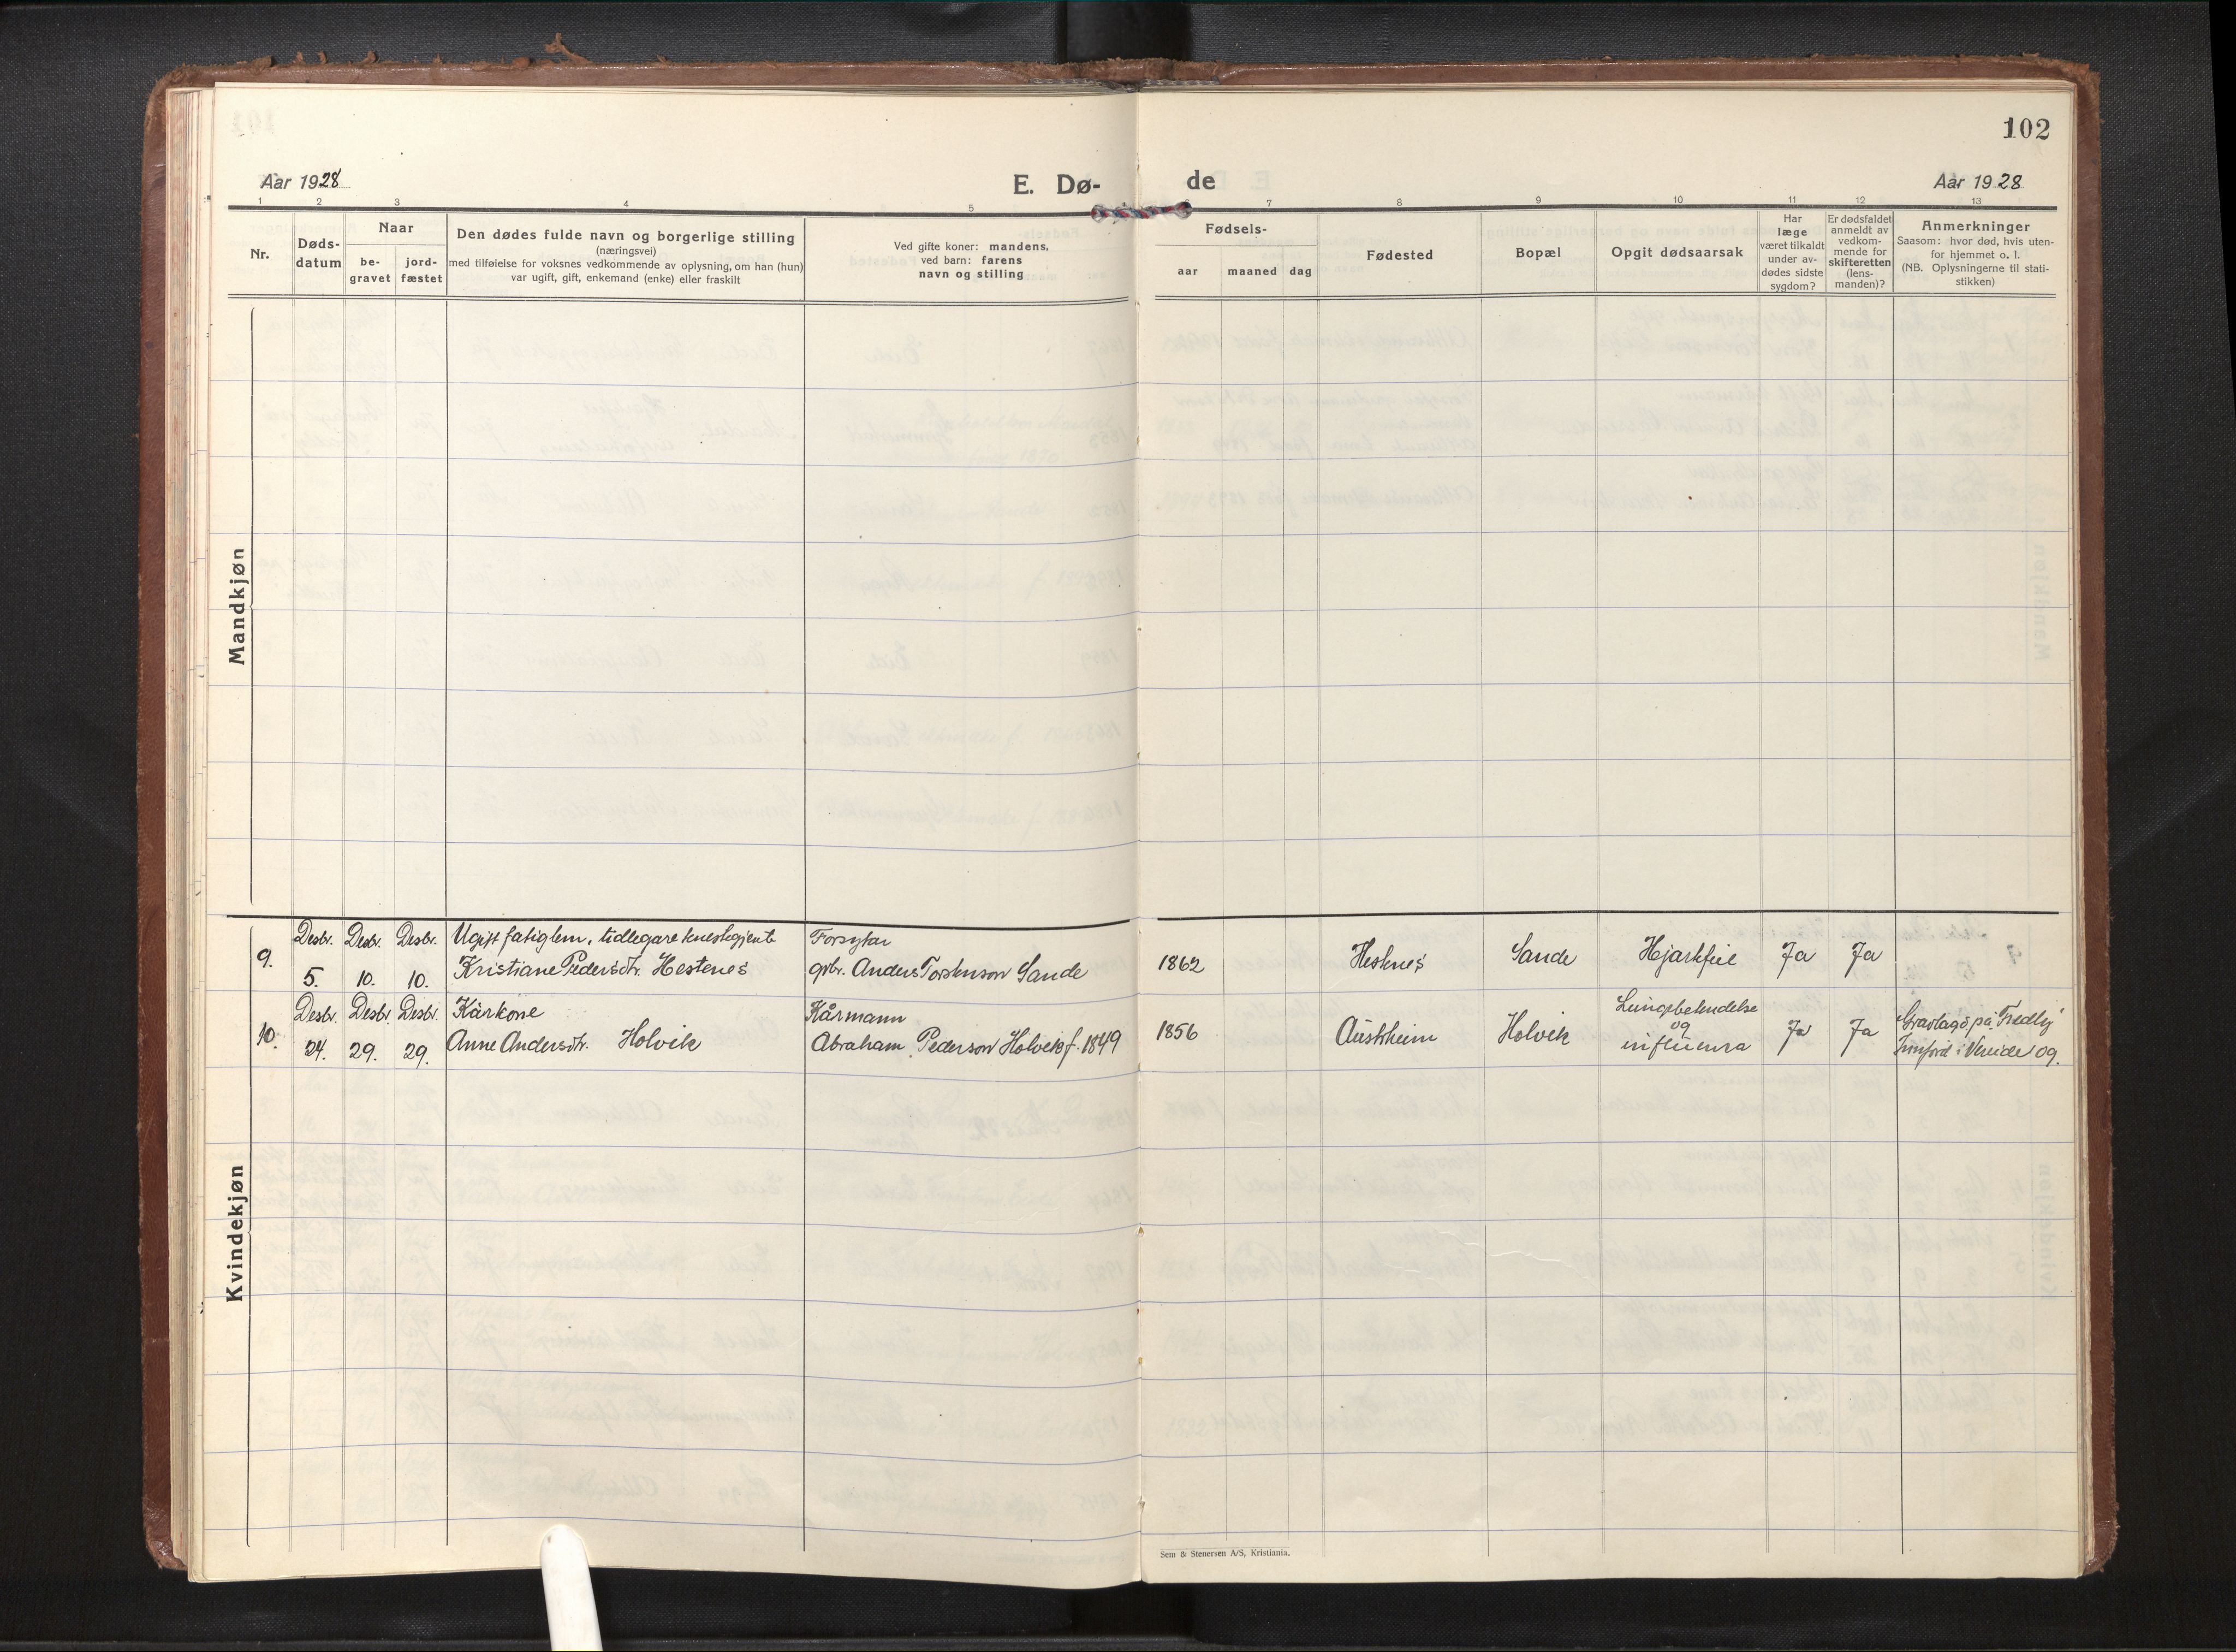 102
Aar 1928
E. Dø-
de
Aar 1928
1 2 3 4 5 6 7 8 9 10 11 12 13
Nr.
Døds-
datum
Naar
be-
gravet
jord-
fæstet
Den dødes fulde navn og borgerlige stilling
(næringsvei)
med tilføielse for voksnes vedkommende av oplysning, om han (hun)
var ugift, gift, enkemand (enke) eller fraskilt
Ved gifte koner: mandens,
ved barn: farens
navn og stilling
Fødsels-
aar maaned dag
Fødested
Bopæl
Opgit dødsaarsak
Har
læge
været tilkaldt
under av-
dødes sidste
sygdom?
Er dødsfaldet
anmeldt av
vedkom-
mende for
skifteretten
(lens-
manden)?
Anmerkninger
Saasom: hvor død, hvis uten-
for hjemmet o. l.
(NB. Oplysningerne til stati-
stikken)
Mandkjøn
Kvindekjøn
9.
Desbr. Desbr. Desbr.
5. 10. 10.
Ugift fatiglem, tidlegare
Kristiane Pedersdtr. Hestenes
Forsytar
gbr. Anders Torstenson Sande
1862
Hestnes
Sande
Hjartefeil
Ja
Ja
10.
Desbr. Desbr. Desbr.
24. 29. 29.
Kårkone
Anne Andersdtr. Holvik
Kårmann
Abraham Pederson Holvik f. 1849
1856
Austrheim
Holvik
Lungebetendelse
og
influensa
Ja
Ja
Gravlagd på "Fredly"
i Vereide sogn.
Sem & Stenersen A/S, Kristiania.